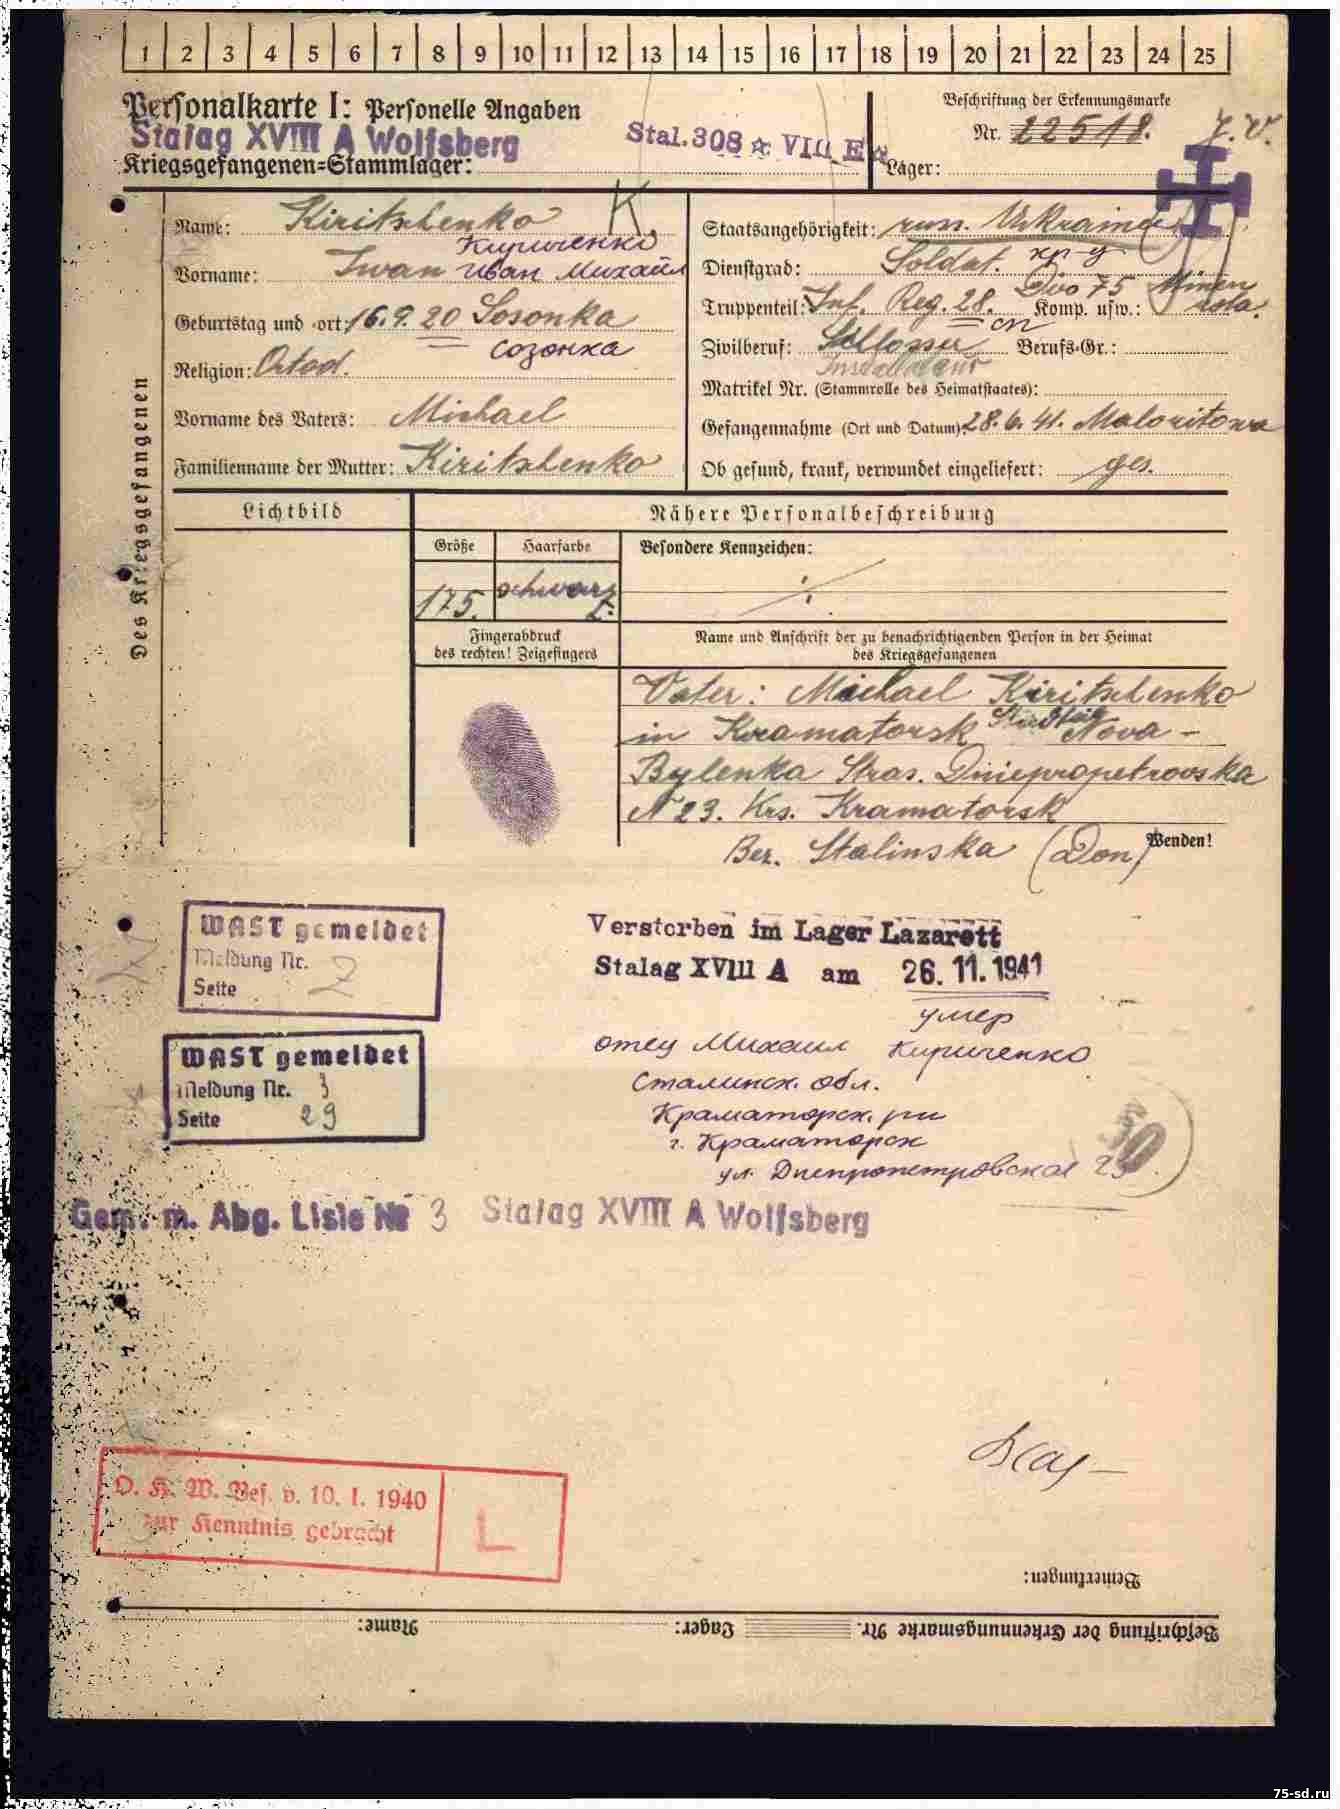 1 2 3 4 5 6 7 8 9 10 11 12 13 14 15 16 17 18 19 20 21 22 23 24 25
Personalkarte I: Personelle Angaben
Stalag XVIII A Wolfsberg
Kriegsgefangenen=Stammlager:
Stal. 308 ☆ VIII E ☆
Beschriftung der Erkennungsmarke
Nr. 22518.
Lager:
Des Kriegsgefangenen
K.
Name: Kiritschenko
Кириченко
Vorname: Iwan Иван Михайл
Geburtstag und =ort: 16.9.20 Sosonka
созонка
Religion: Ortod.
Vorname des Vaters: Michael
Familienname der Mutter: Kiritschenko
Staatsangehörigkeit: russ. Ukraine
Dienstgrad: Soldat. кр-ц
Truppenteil: Inf. Reg. 28. Div 75 Komp. usw.: Minen
сп
Zivilberuf: Schlosser Berufs=Gr.:
Installateur
Matrikel Nr. (Stammrolle des Heimatstaates):
Gefangennahme (Ort und Datum): 28.6.41. Maloritowa
Ob gesund, krank, verwundet eingeliefert: ges.
Lichtbild
Nähere Personalbeschreibung
Größe
Haarfarbe
Besondere Kennzeichen:
175.
schwarz
Fingerabdruck
des rechten! Zeigefingers
Name und Anschrift der zu benachrichtigenden Person in der Heimat
des Kriegsgefangenen
Vater: Michael Kiritschenko
in Kramatorsk Stadtteil Nova-
Bylenka Stras. Dniepropetrovska
N 23. Krs. Kramatorsk
Bez. Stalinska (Don)
Wenden!
WASt gemeldet
Meldung Nr. 2
Seite
WASt gemeldet
Meldung Nr. 3
Seite 29
Verstorben im Lager Lazarett
Stalag XVIII A am 26. 11. 1941
умер
отец Михаил Кириченко
Сталинск. обл.
Краматорск. рн
г. Краматорск
ул. Днепропетровская 23.
Gem. m. Abg. Liste Nr 3 Stalag XVIII A Wolfsberg
O. K. W. Bef. v. 10. I. 1940
zur Kenntnis gebracht
L
Bemerkungen:
Beschriftung der Erkennungsmarke Nr. Lager: Name:
75-sd.ru